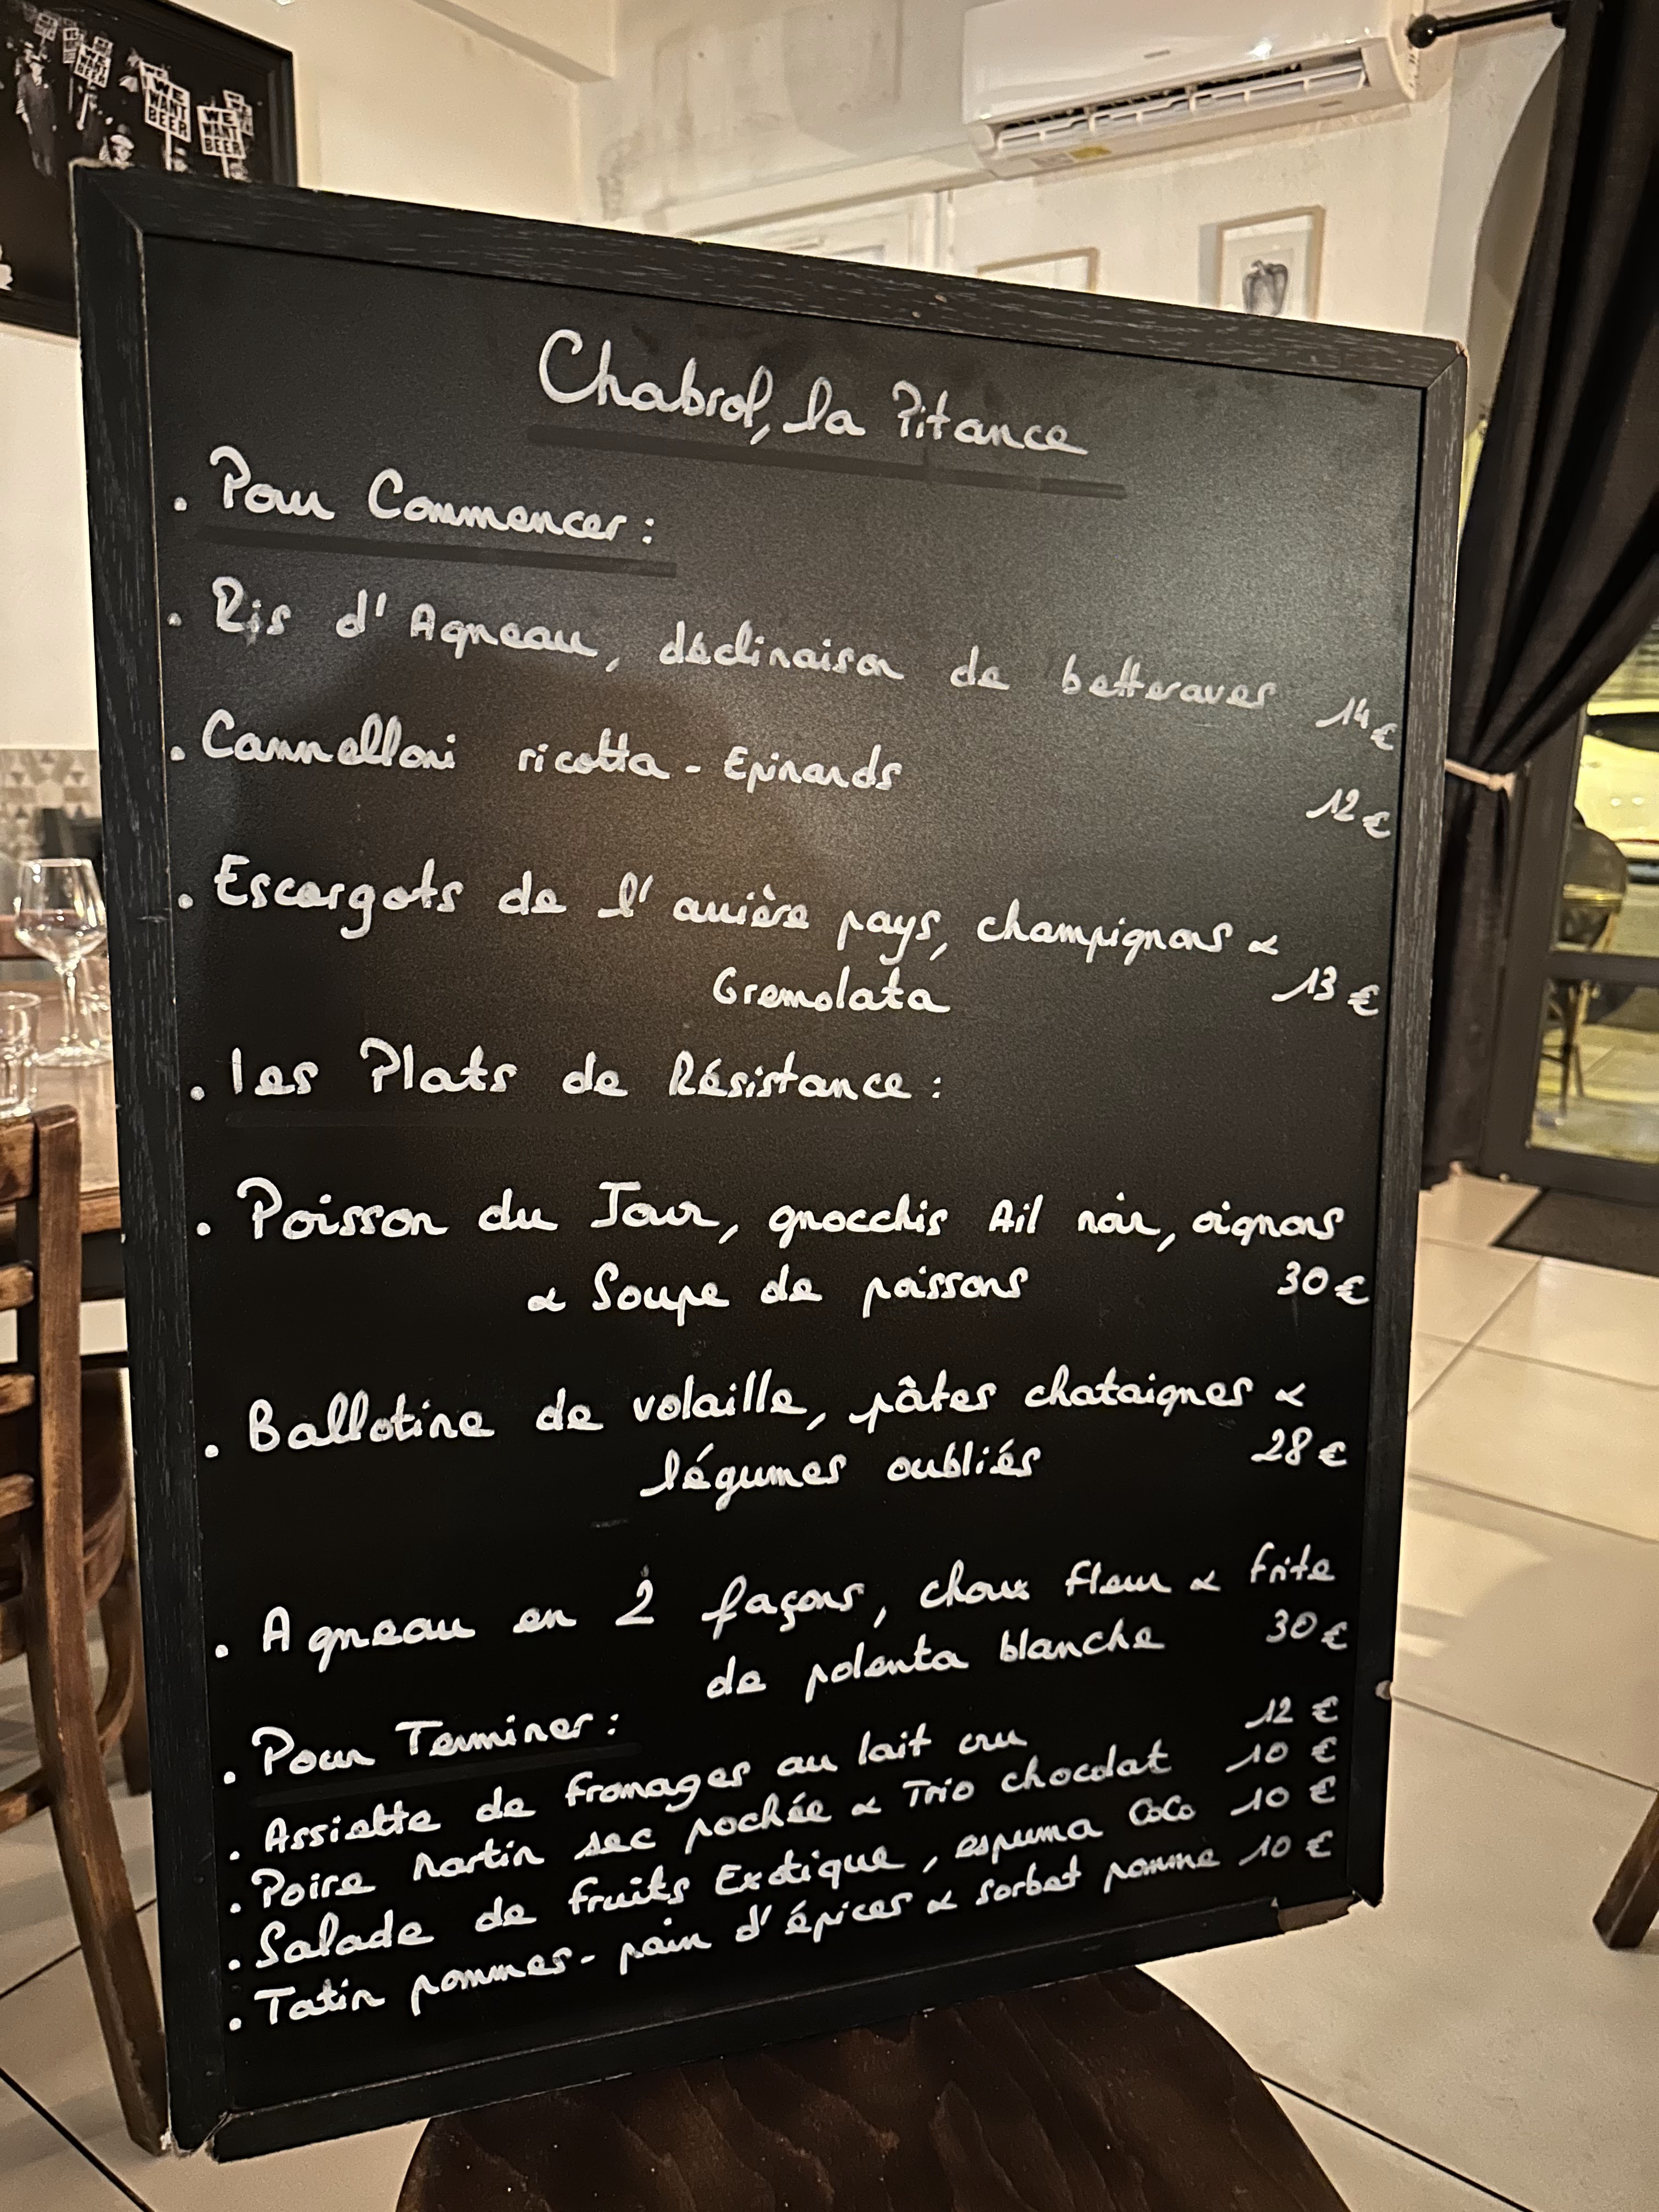 WE WANT BEER
WE WANT BEER
Chabrol, la Pitance
. Pour Commencer :
. Ris d'Agneau, déclinaison de betteraves 14 €
. Cannelloni ricotta - Epinards 12 €
. Escargots de l'arrière pays, champignons &
Gremolata 13 €
. Les Plats de Résistance :
. Poisson du Jour, gnocchis Ail noir, oignons
& Soupe de poissons 30 €
. Ballotine de volaille, pâtes chataignes &
légumes oubliés 28 €
. Agneau en 2 façons, choux fleur & frite
de polenta blanche 30 €
. Pour Terminer :
. Assiette de fromages au lait cru 12 €
. Poire Martin sec pochée & Trio chocolat 10 €
. Salade de fruits Exotique, espuma CoCo 10 €
. Tatin pommes - pain d'épices & sorbet pomme 10 €